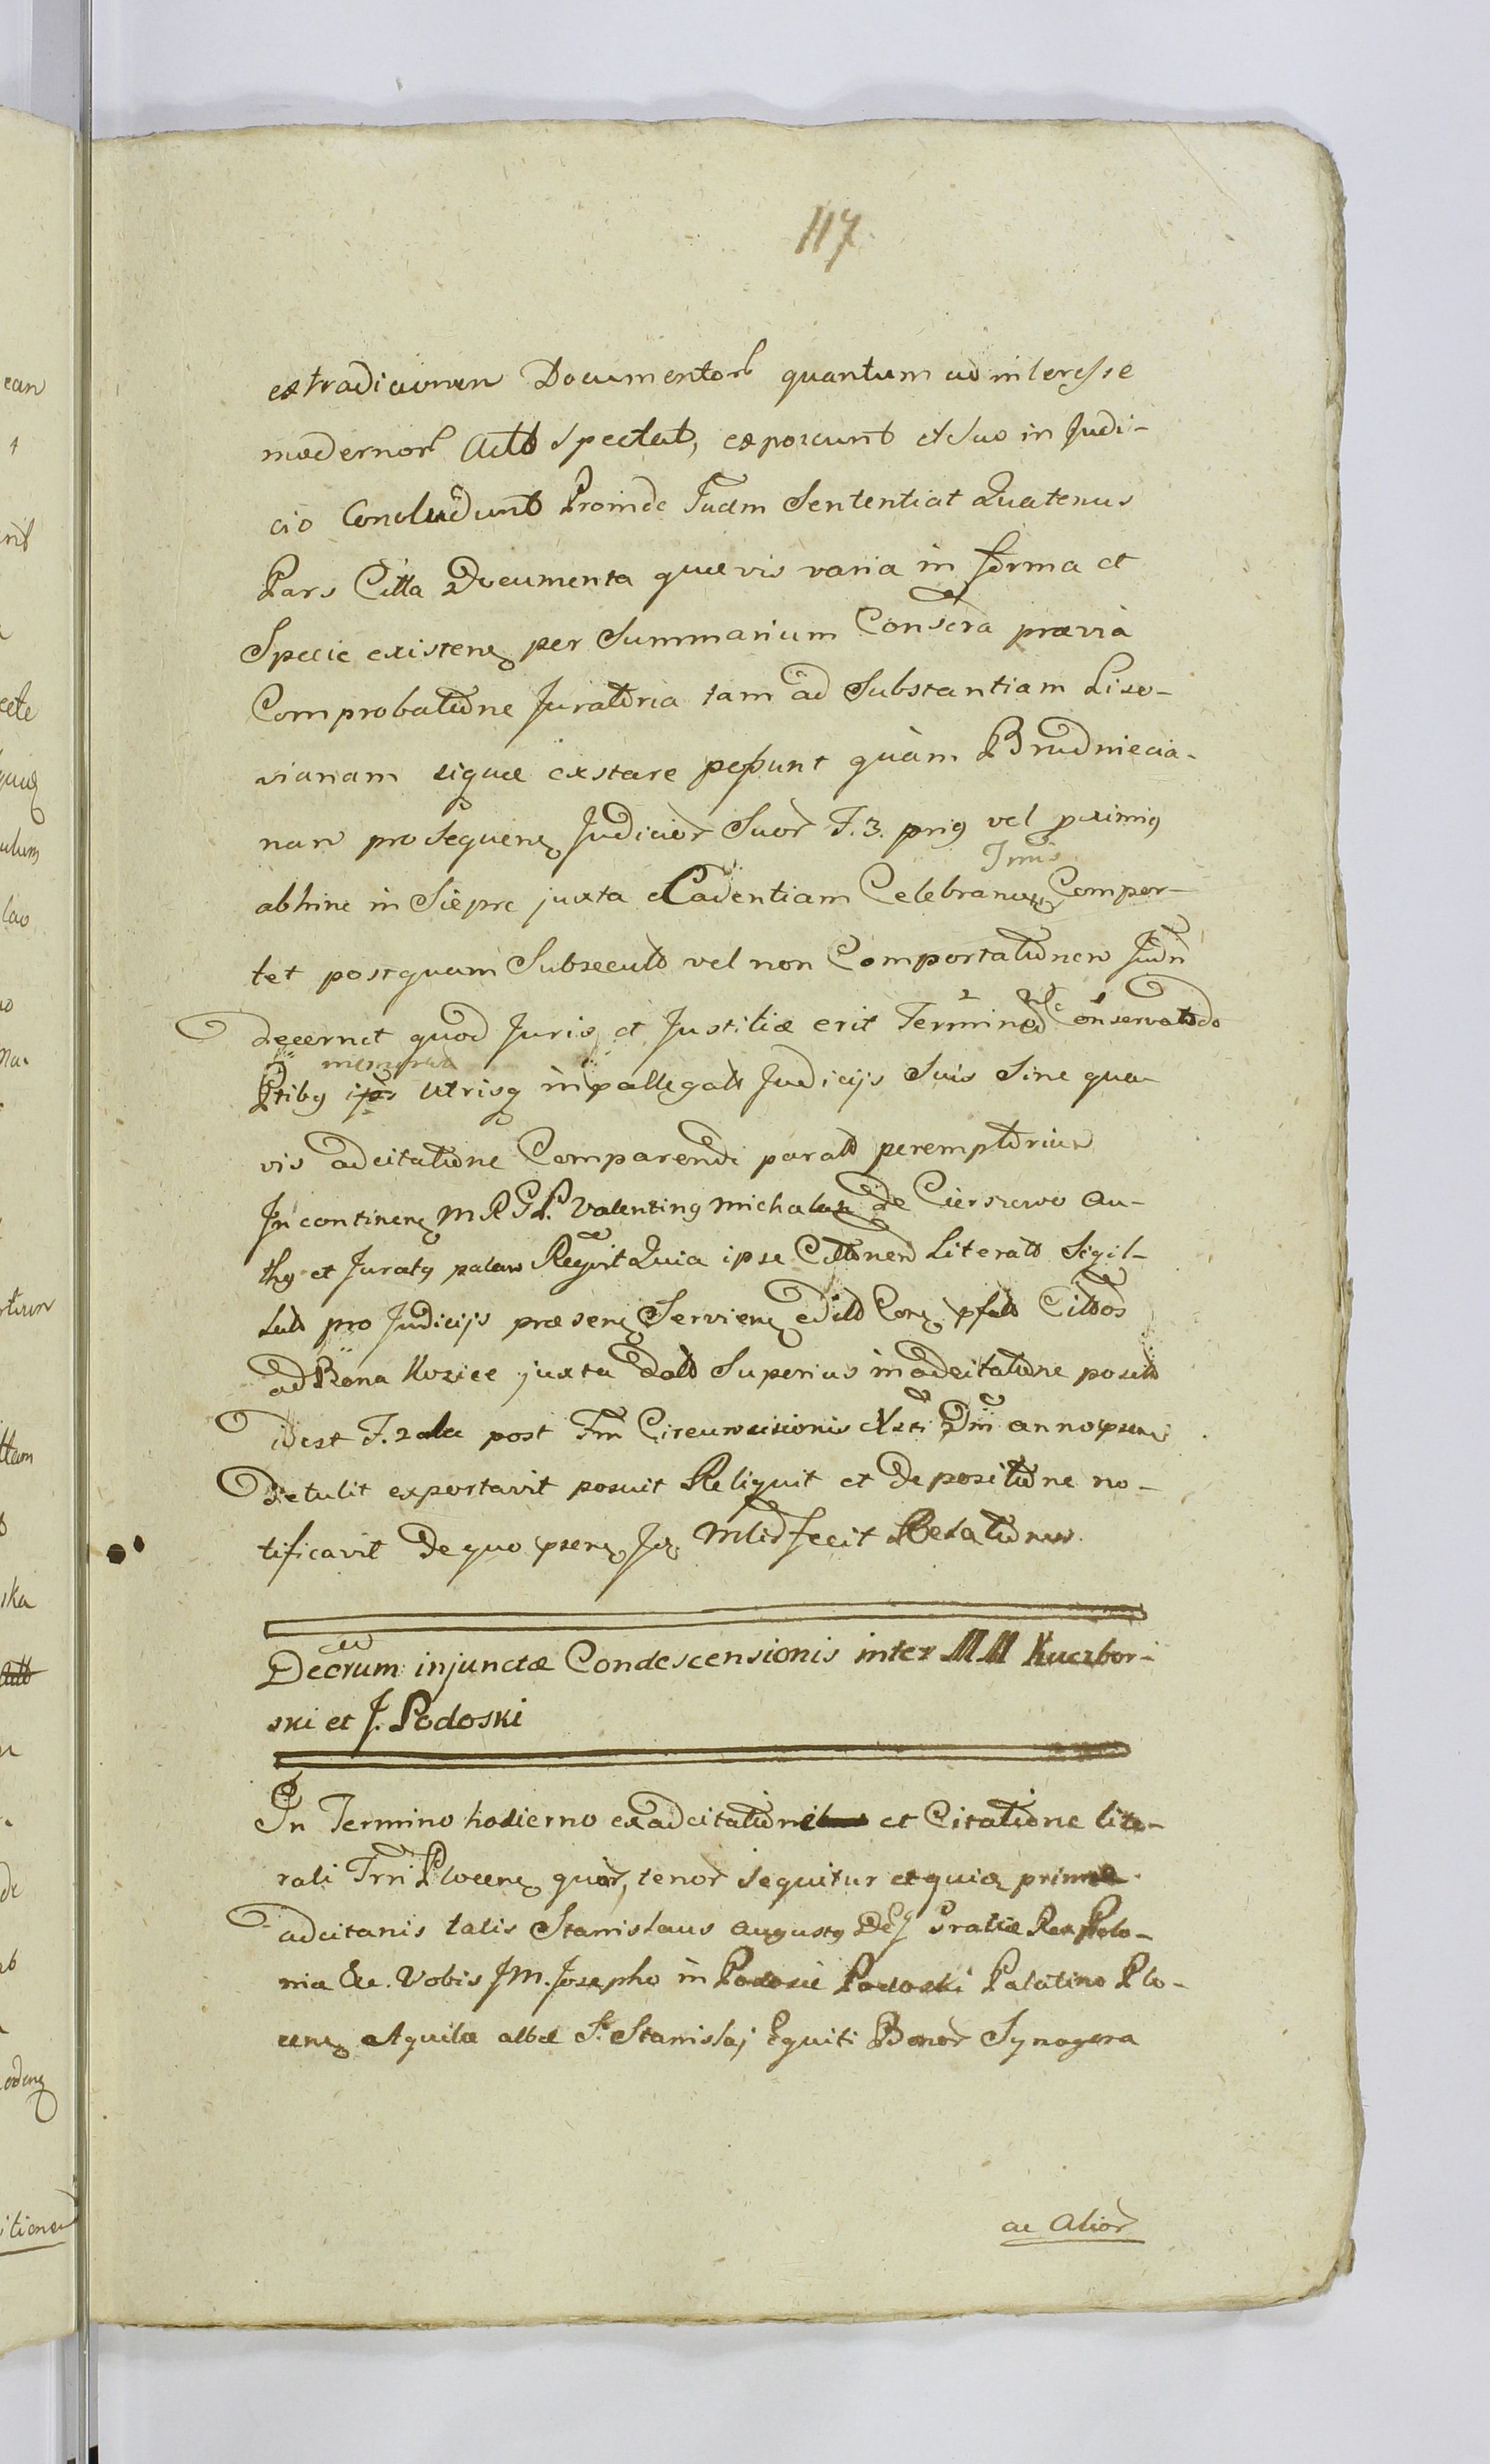 117.
extraditionem Documentor quantum ad interesse
modernor Actt spectat, exposcunt et suo in Judi-
cio Concludunt Proinde Juam Sententiat Quatenus
Pars Citta Documenta quævis varia in forma et
Specie existeng per Summarium Conscra prævia
Comprobatione Juratoria tam ad Substantiam Liso-
vianam siquæ exstare possunt quàm Brudniecia-
nam pro sequeng Judicior Suor F. 3. prig vel proximig
Trnis
abhinc in Sierpc juxta Cadentiam Celebrang Compor-
tet postquam Subsecutt vel non Comportationem Judn
decernet quod Juris et Justitiæ erit Termined Conservatodo
memorada
Ptibg ips Utrisq in pallegatt Judicijs Suis Sine qua-
vis adcitatione Comparendi paratt peremptorium
In contineng M R G L. Valenting Michalsz de Cierszewo Au-
thg et Juratg palam Recgvit Quia ipse Cittonem Literatt Sigil-
latt pro Judicijs præseng Servieng editt Corg pfatt Cittos
ad Bona Kozice juxta datt Superius in adcitatione positt
idest F. 2da post Fm Circumcisionis Xsti Dni anno pseng
Detulit exportavit posuit Reliquit et de positione no-
tificavit De quo pseng Jg Mlid fecit Relationem.
Decrum injunctæ Condescensionis inter MM Kuczbor-
ski et J. Podoski
In Termino hodierno ex adcitatione et Citatione lite-
rali Trni Ploceng quor, tenor sequitur et quia primæ
adcitanis talis Stanislaus Augustg Dei Gratiæ Rex Polo-
niæ &c. Vobis JM. Josepho in Podosie Podoski Palatino Plo-
ceng Aquilæ albæ St. Stanislaj Equiti Bonor Synogora
ac Alior